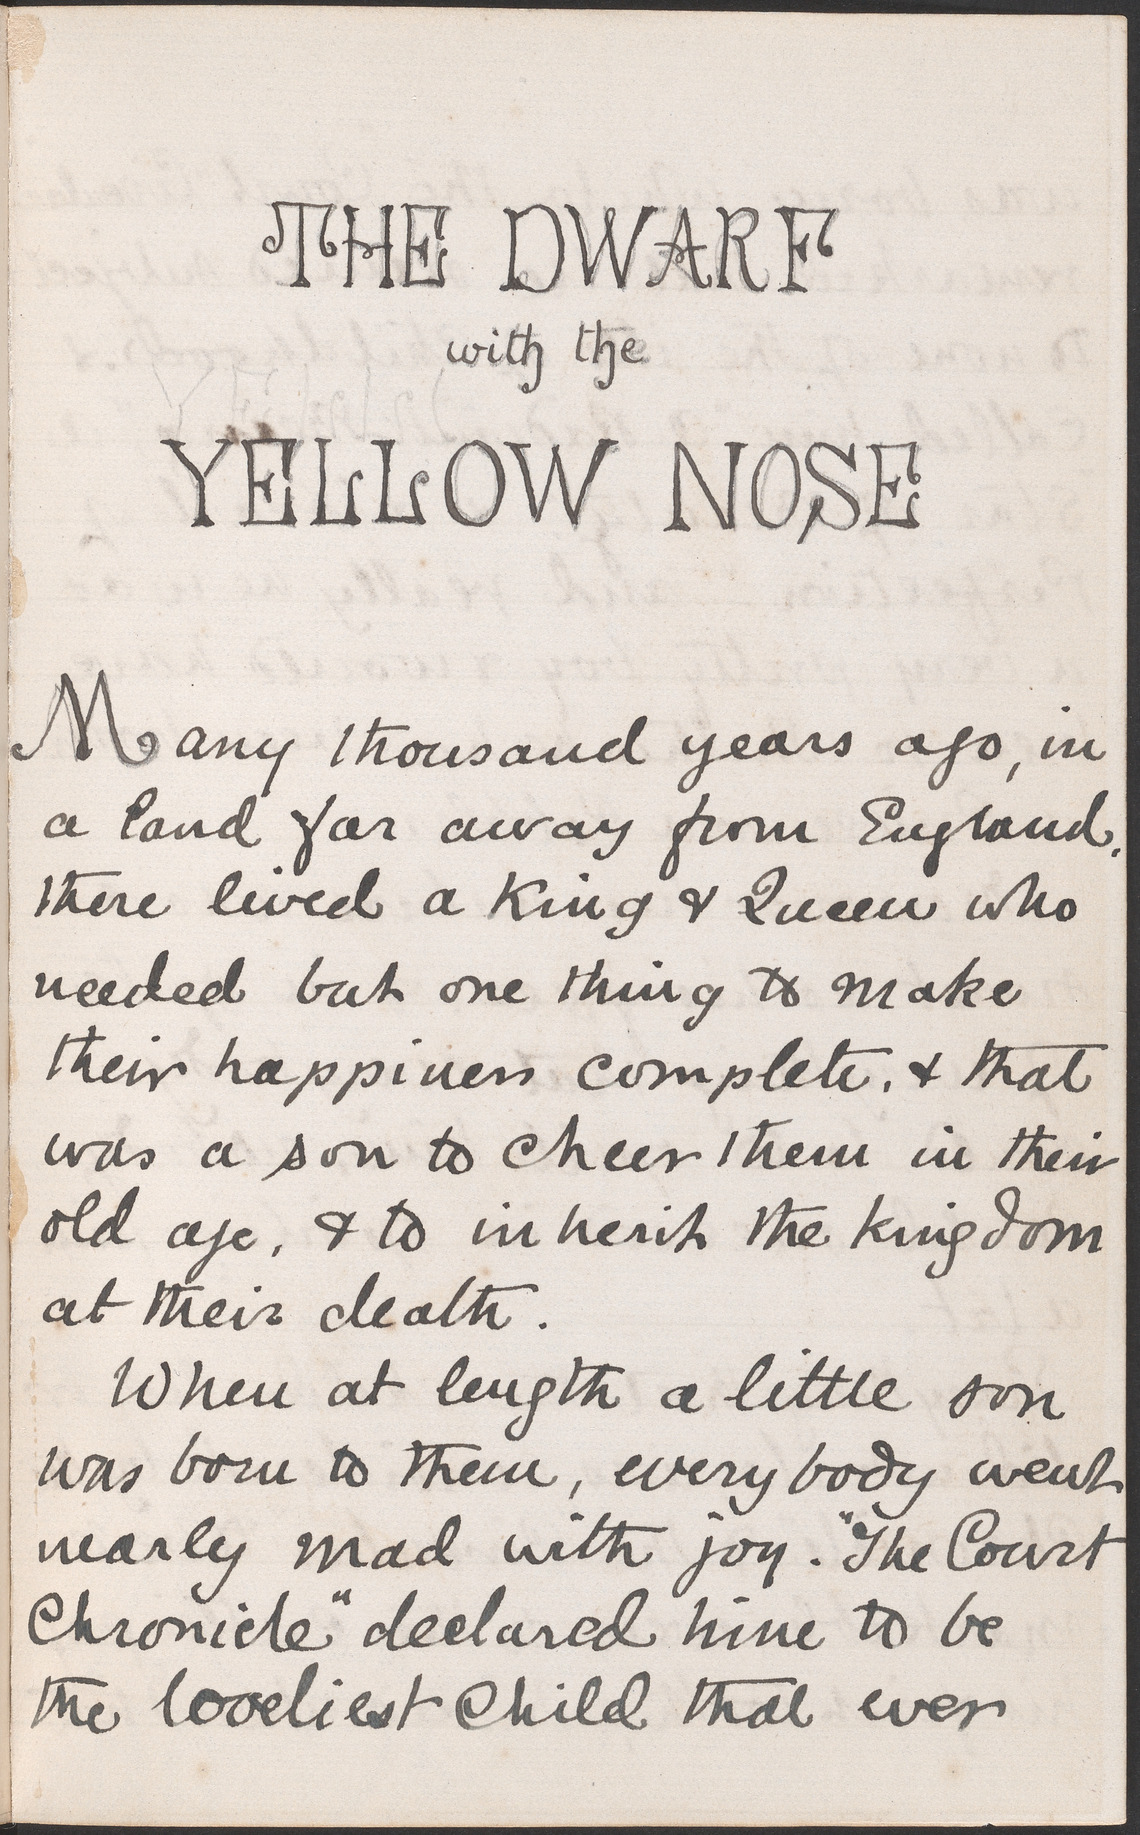 THE DWARF
with the
YELLOW NOSE
Many thousand years ago, in
a land far away from England,
there lived a King & Queen who
needed but one thing to make
their happiness complete, & that
was a son to cheer them in their
old age, & to inherit the kingdom
at their death.
When at length a little son
was born to them, everybody went
nearly mad with joy. "The Court
Chronicle" declared him to be
the loveliest child that ever